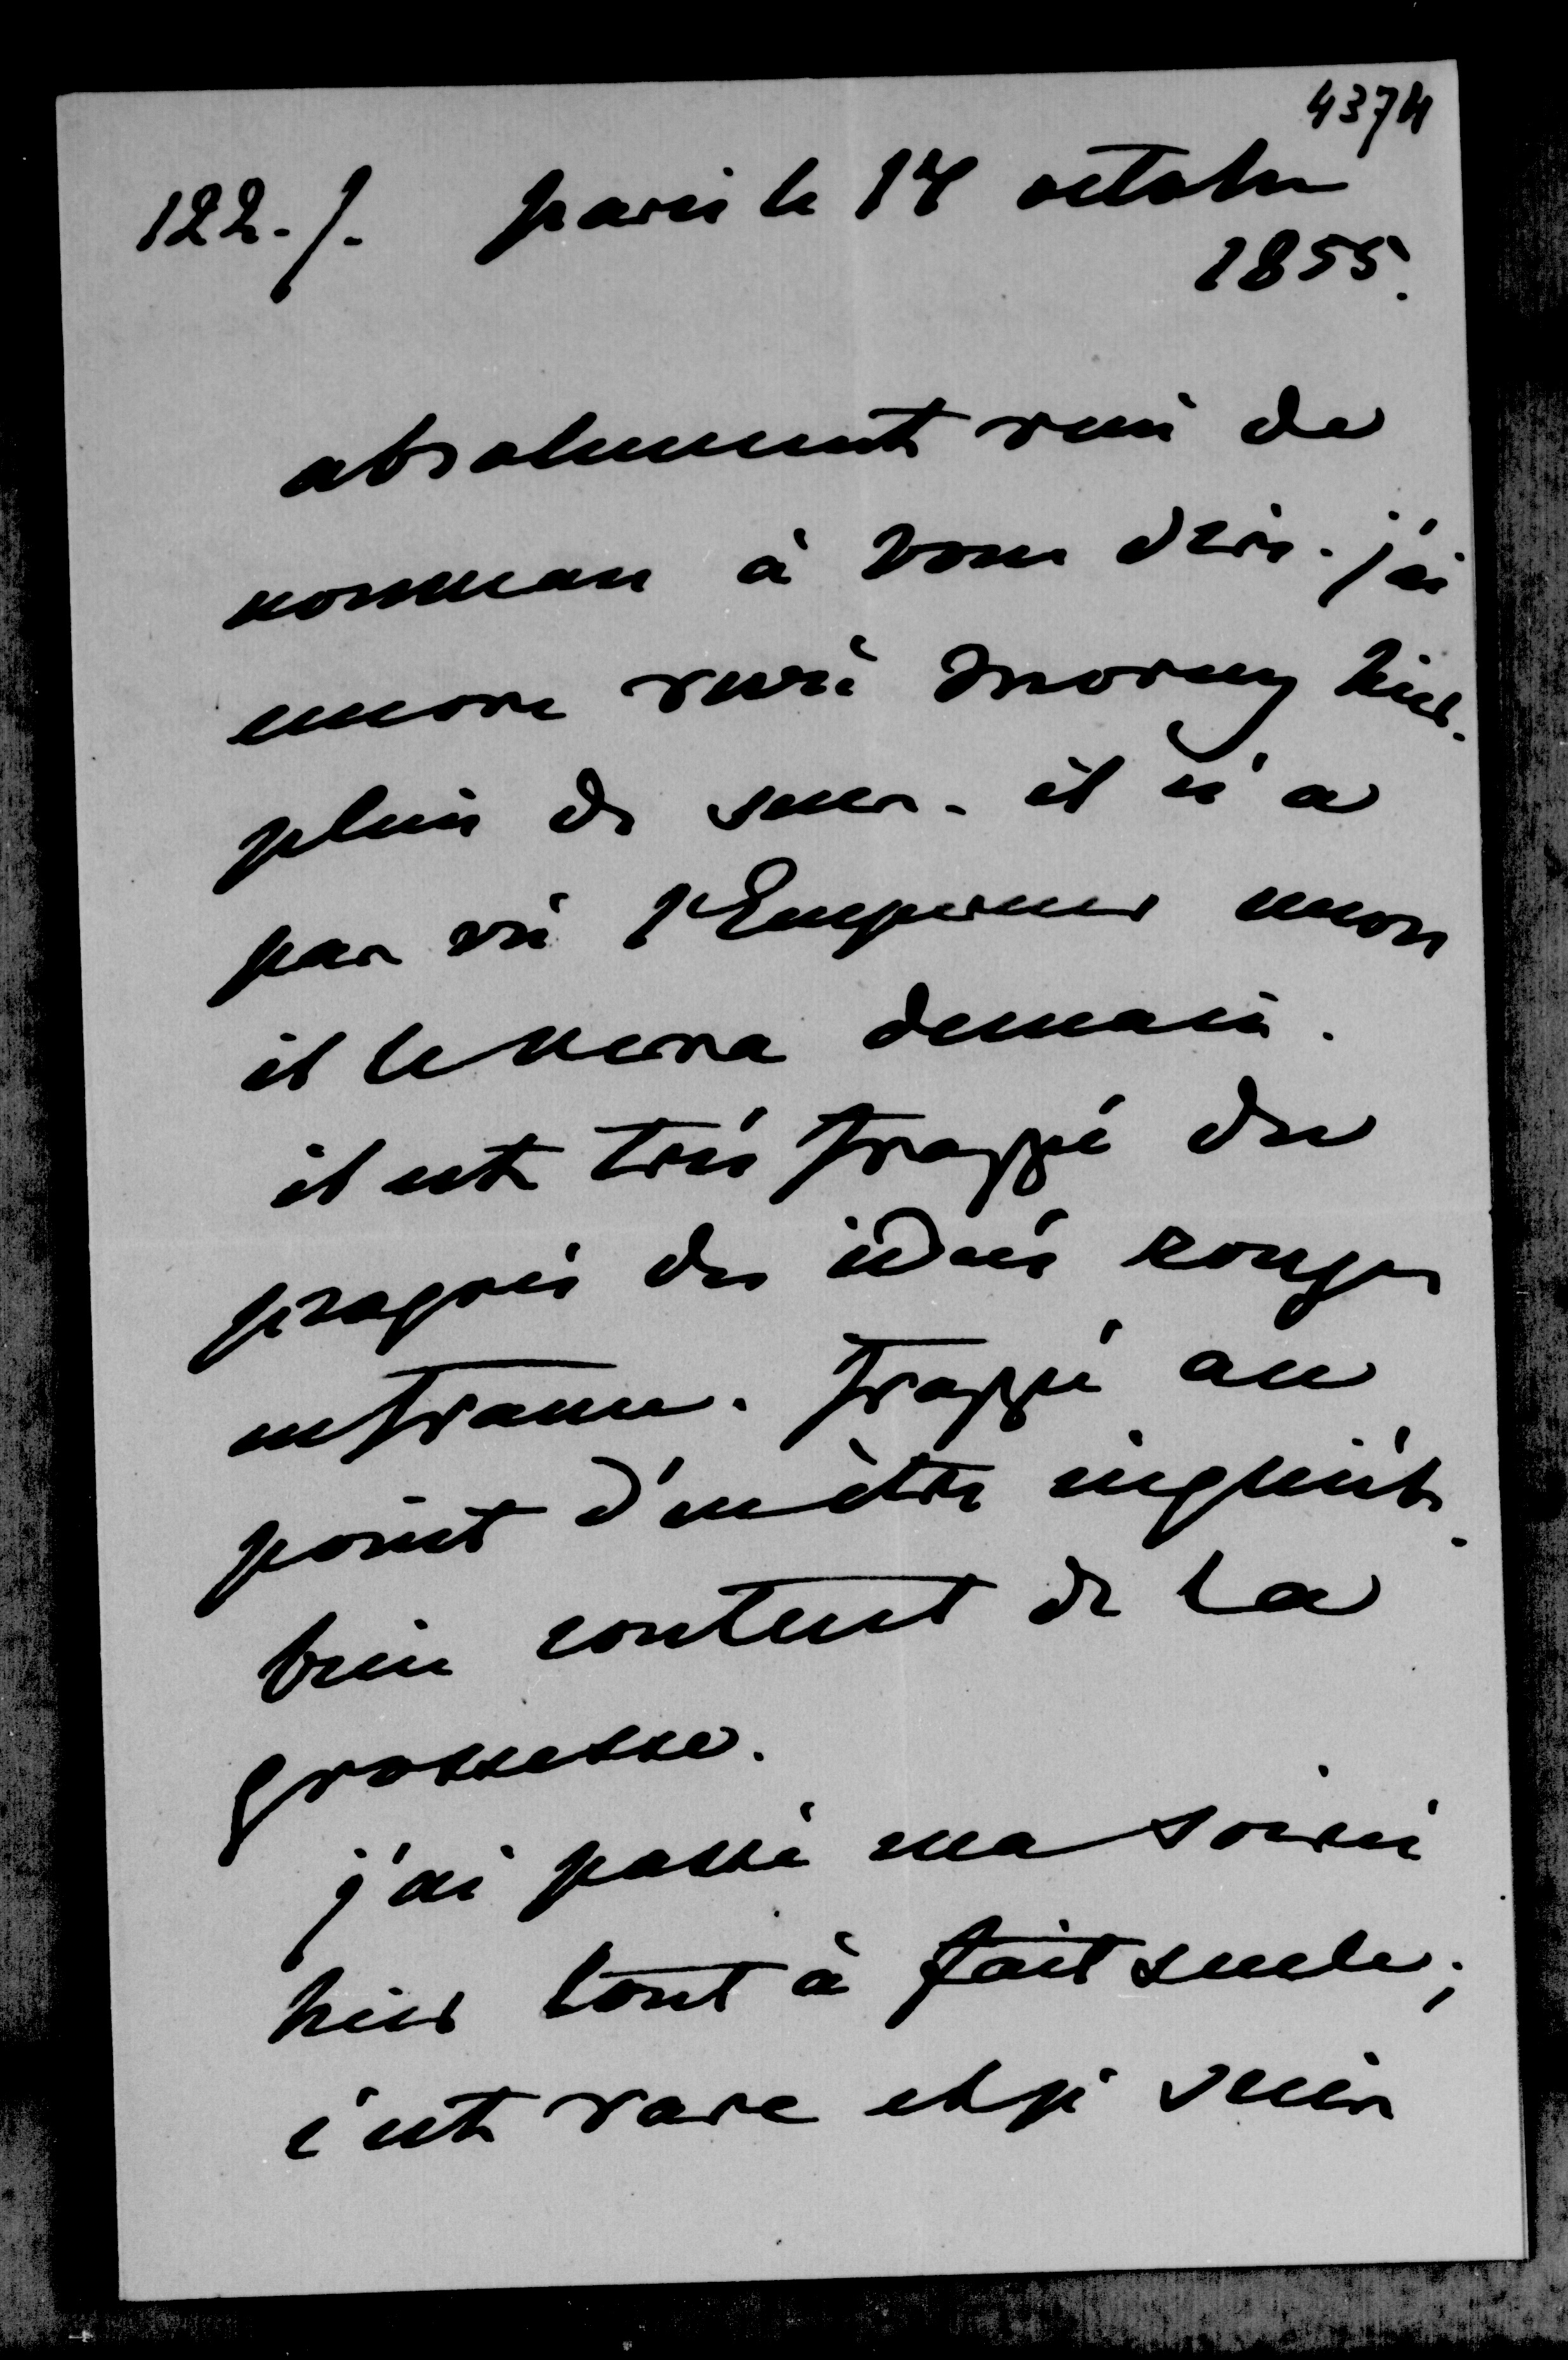 4374
122. /. paris le 14 octobre
1855.
absolument rien de
nouveau à vous dire. j'ai
encore revu Morny hier.
plein de sens. il n'a
pas vu l'Empereur encore
il le verra demain.
il est très frappé du
progrès des idées rouges
en france. frappé au
point d'en être inquiet.
bien content de la
grossesse.
j'ai passé ma soirée
hier tout à fait seule;
c'est rare et je suis